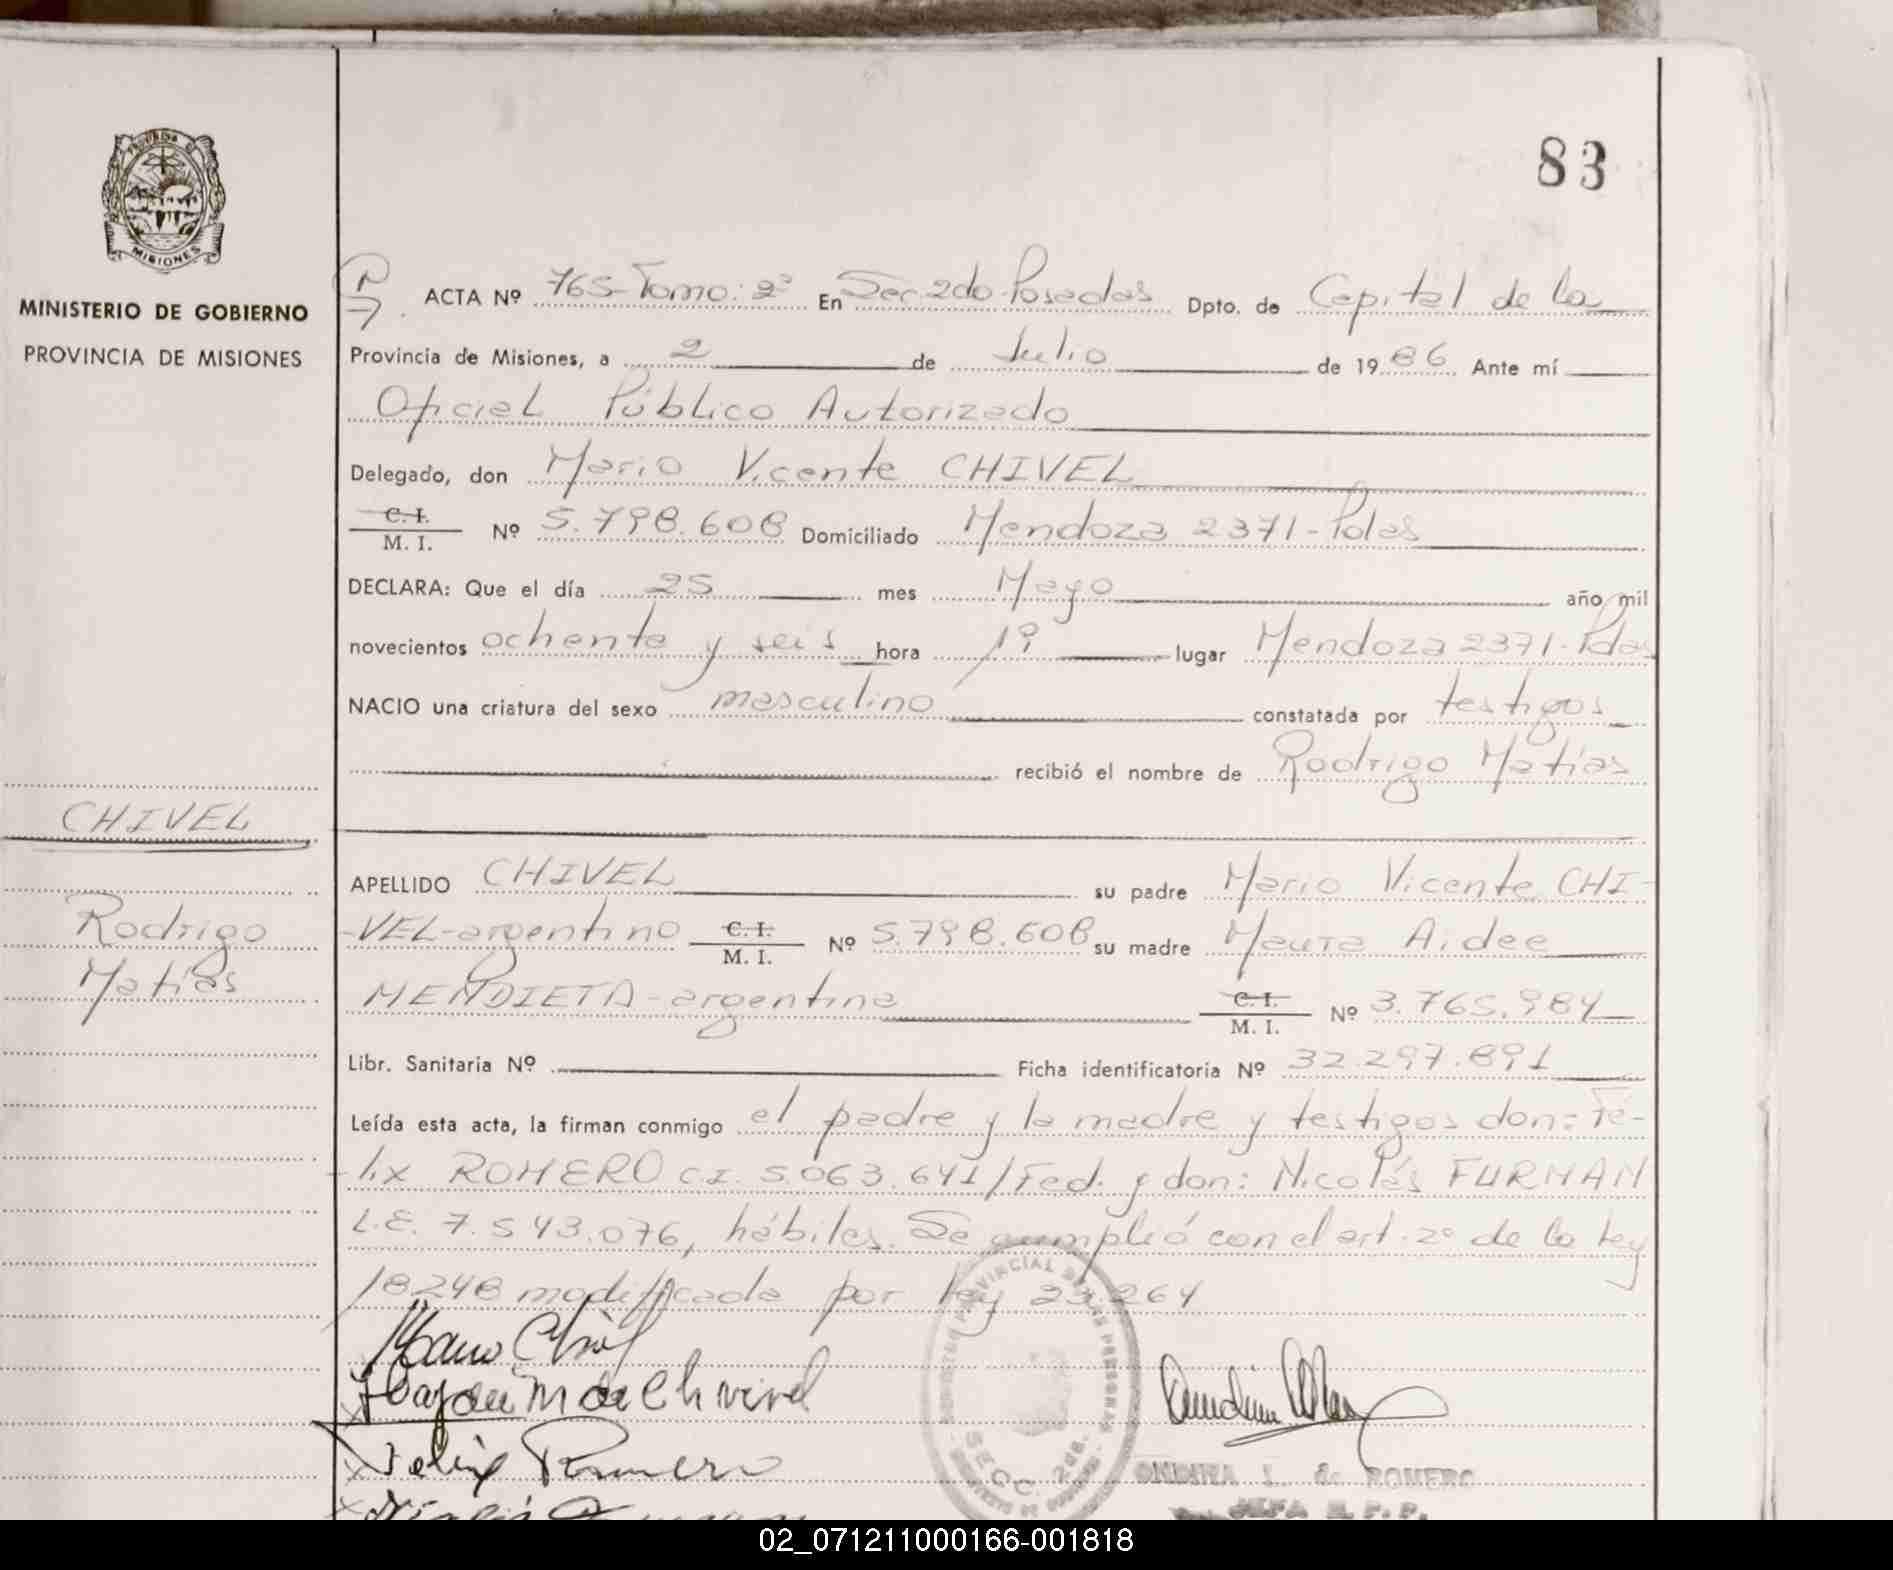 83
PROVINCIA DE
MISIONES
MINISTERIO DE GOBIERNO
PROVINCIA DE MISIONES
ACTA Nº 765-Tomo: 2º En Sec. 2do Posadas Dpto. de Capital de la
Provincia de Misiones, a 2 de Julio de 1986 Ante mí
Oficial Público Autorizado
Delegado, don Mario Vicente CHIVEL
C. I.
M. I. Nº 5.798.608 Domiciliado Mendoza 2371-Pdas
DECLARA: Que el día 25 mes Mayo año mil
novecientos ochenta y seis hora 19 lugar Mendoza 2371-Pdas
NACIO una criatura del sexo masculino constatada por testigos
recibió el nombre de Rodrigo Matías
CHIVEL
Rodrigo
Matías
APELLIDO CHIVEL su padre Mario Vicente CHI-
-VEL-argentino C. I. M. I. Nº 5.798.608 su madre Maura Aidee
MENDIETA-argentina C. I. M. I. Nº 3.765.984
Libr. Sanitaria Nº Ficha identificatoria Nº 32.297.891
Leída esta acta, la firman conmigo el padre y la madre y testigos don: Fé-
-lix ROMERO C.I. 5.063.641/Fed. y don: Nicolás FURMAN
L.E. 7.543.076, hábiles. Se cumplió con el art. 2º de la Ley
18248 modificada por Ley 23.264
Mario Chivel
M de Chivel
Felix Romero
REGISTRO PROVINCIAL DE LAS PERSONAS
SECC. 2da.
ONDINA I. de ROMERO
JEFA R. P. P.
02_071211000166-001818